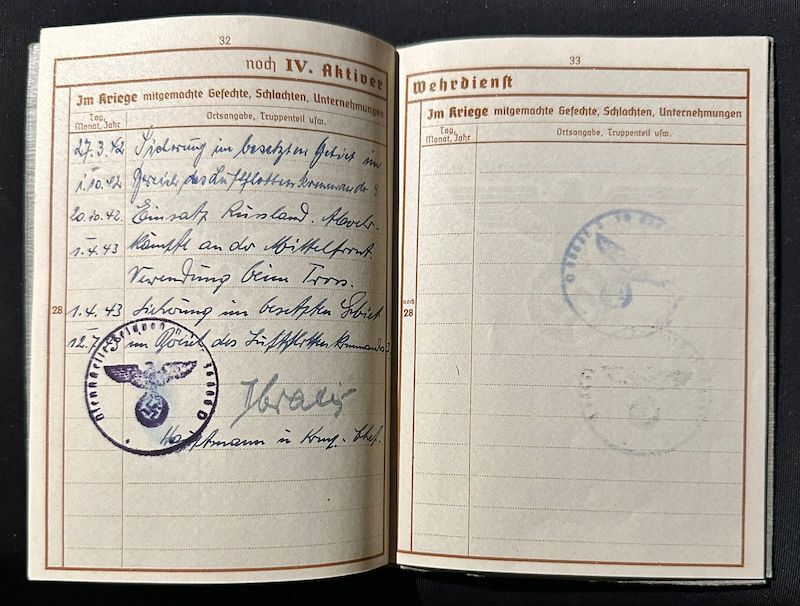 32
noch IV. Aktiver
Im Kriege mitgemachte Gefechte, Schlachten, Unternehmungen
Tag, Monat, Jahr
Ortsangabe, Truppenteil usw.
27.3.42 Sicherung im besetzten Gebiet im
1.10.42 Bereich des Luftflottenkommandos
20.10.42. Einsatz Russland. Abwehr-
1.4.43 kämpfe an der Mittelfront.
Verwendung beim Tross.
28 1.4.43 Sicherung im besetzten Gebiet
12.7. im Bereich des Luftflottenkommandos 3.
Hauptmann u. Komp.-Chef.
33
Wehrdienst
Im Kriege mitgemachte Gefechte, Schlachten, Unternehmungen
Tag, Monat, Jahr
Ortsangabe, Truppenteil usw.
noch
28